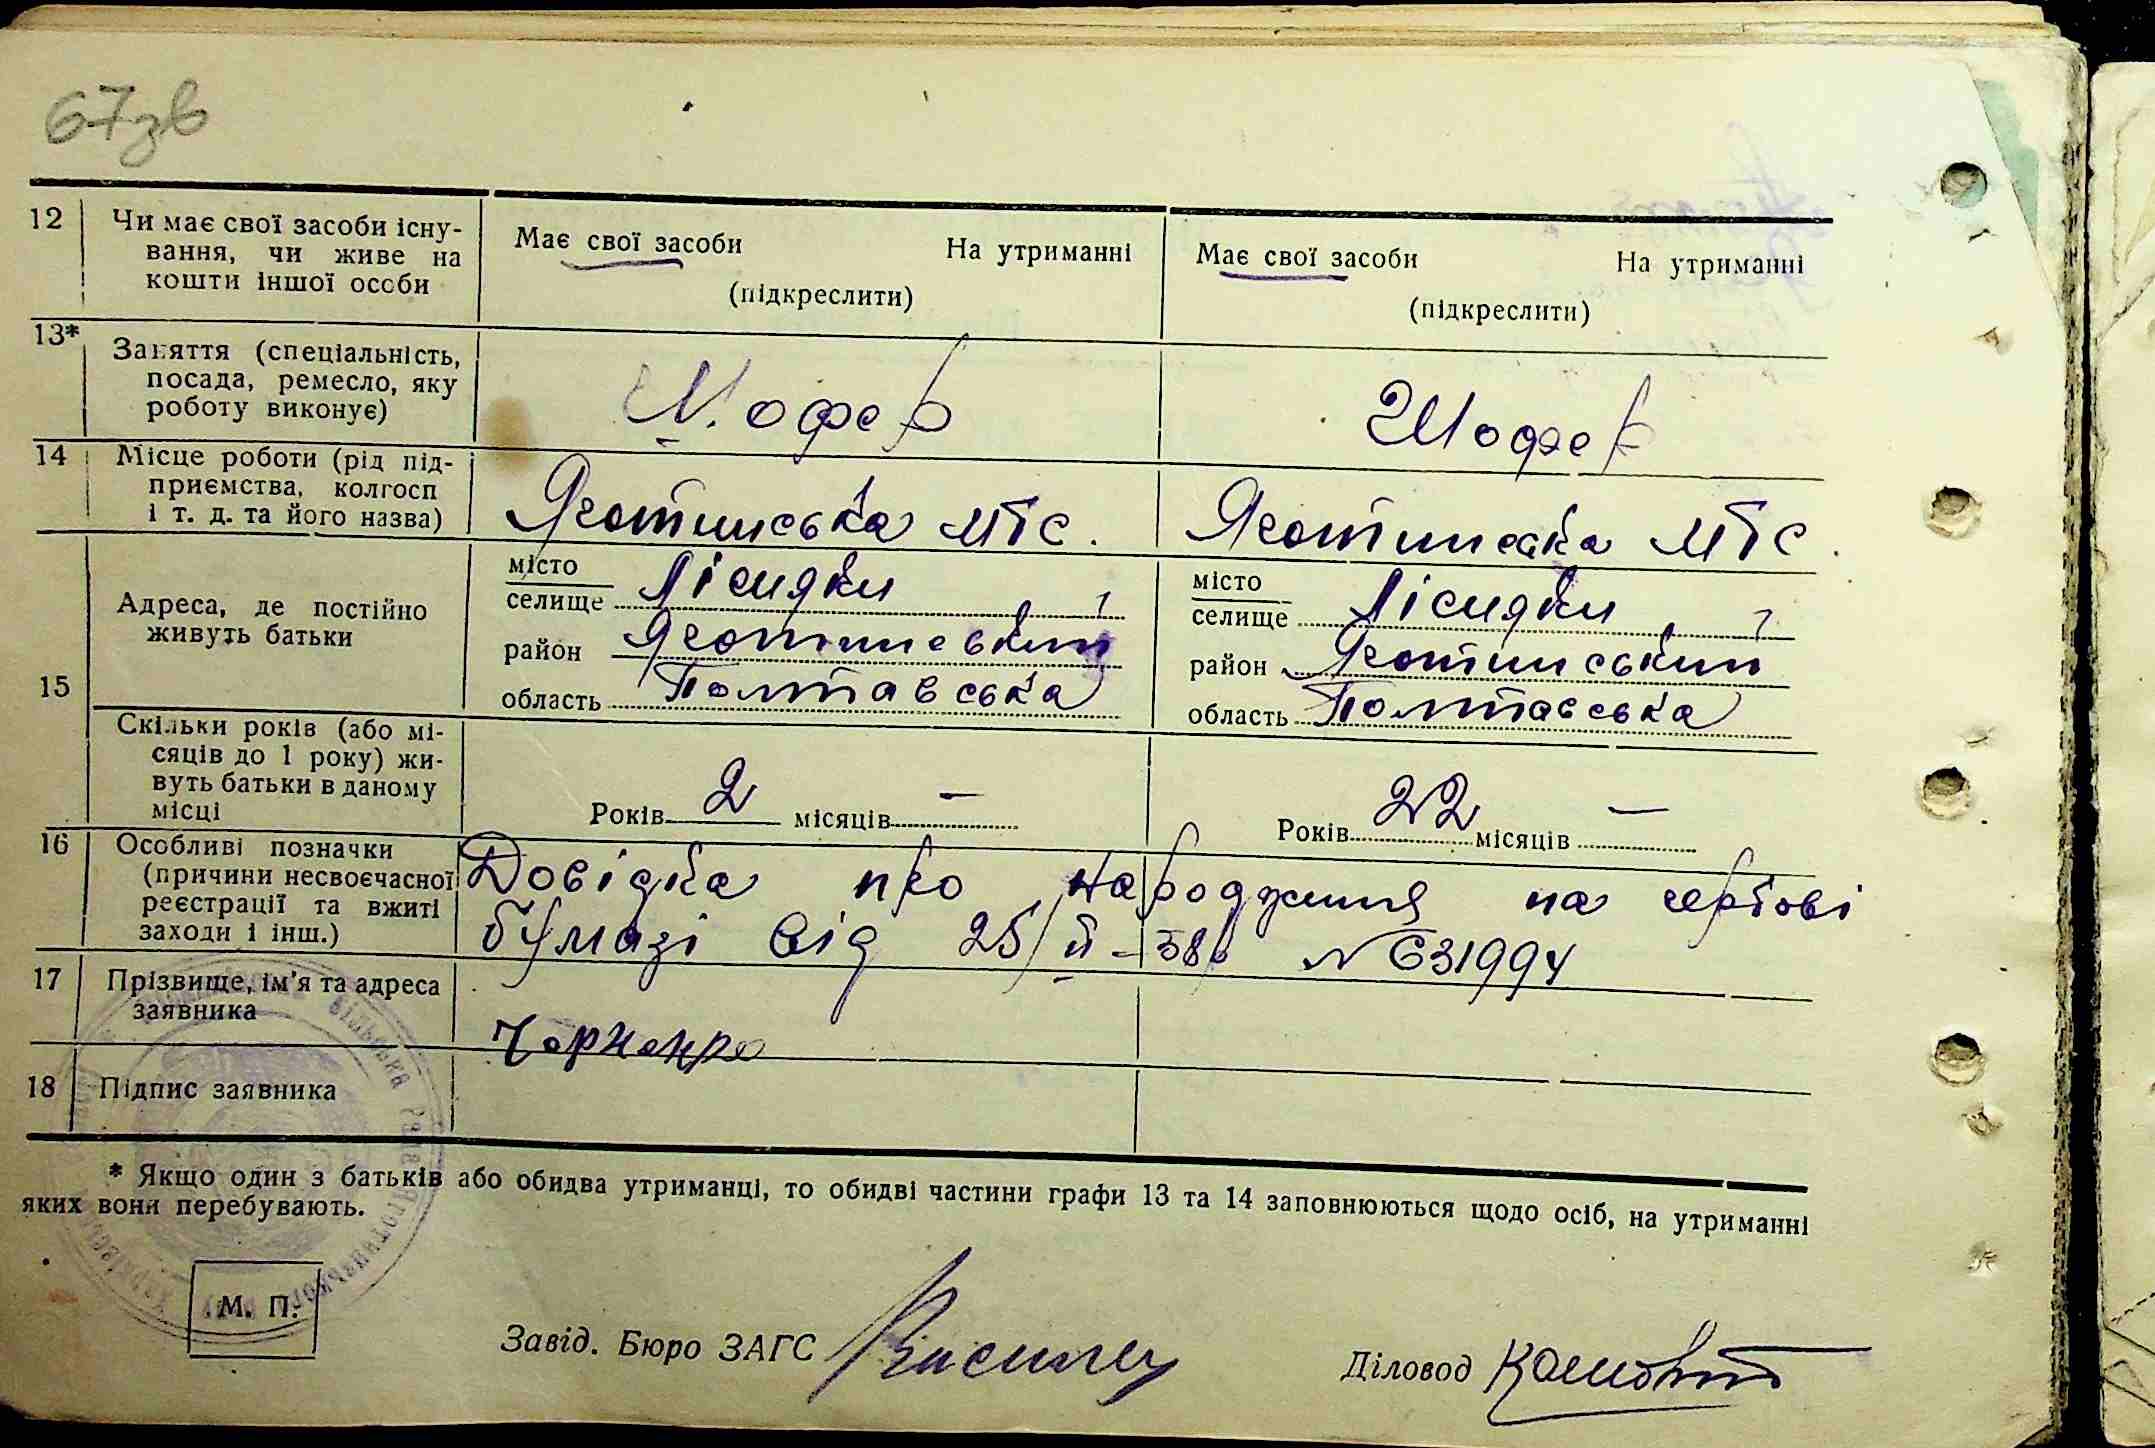 67зв
12 Чи має свої засоби існу-
вання, чи живе на
кошти іншої особи
Має свої засоби На утриманні
(підкреслити)
Має свої засоби На утриманні
(підкреслити)
13* Заняття (спеціальність,
посада, ремесло, яку
роботу виконує)
Шофер
Шофер
14 Місце роботи (рід під-
приємства, колгосп
і т. д. та його назва)
Яготинська МТС.
Яготинська МТС.
15 Адреса, де постійно
живуть батьки
місто
селище Лісняки,
район Яготинський
область Полтавська
місто
селище Лісняки,
район Яготинський
область Полтавська
Скільки років (або мі-
сяців до 1 року) жи-
вуть батьки в даному
місці
Років 2 місяців —
Років 22 місяців —
16 Особливі позначки
(причини несвоєчасної
реєстрації та вжиті
заходи і інш.)
Довідка про народження на гербові
бумазі від 25/II-38р №631994
17 Прізвище, ім'я та адреса
заявника
18 Підпис заявника
* Якщо один з батьків або обидва утриманці, то обидві частини графи 13 та 14 заповнюються щодо осіб, на утриманні
яких вони перебувають.
М. П.
Завід. Бюро ЗАГС
Діловод